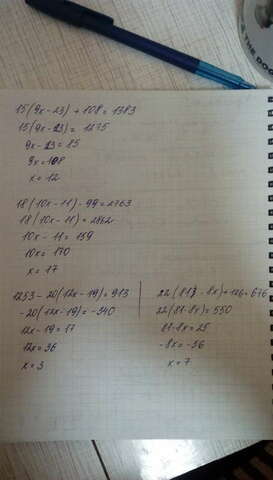 15(9x-23)+108=1383
15(9x-23)=1275
9x-23=85
9x=108
x=12
18(10x-11)-99=2763
18(10x-11)=2862
10x-11=159
10x=170
x=17
1253-20(12x-19)=913
-20(12x-19)=-340
12x-19=17
12x=36
x=3
22(81-8x)+126=676
22(81-8x)=550
81-8x=25
-8x=-56
x=7
THE DOC